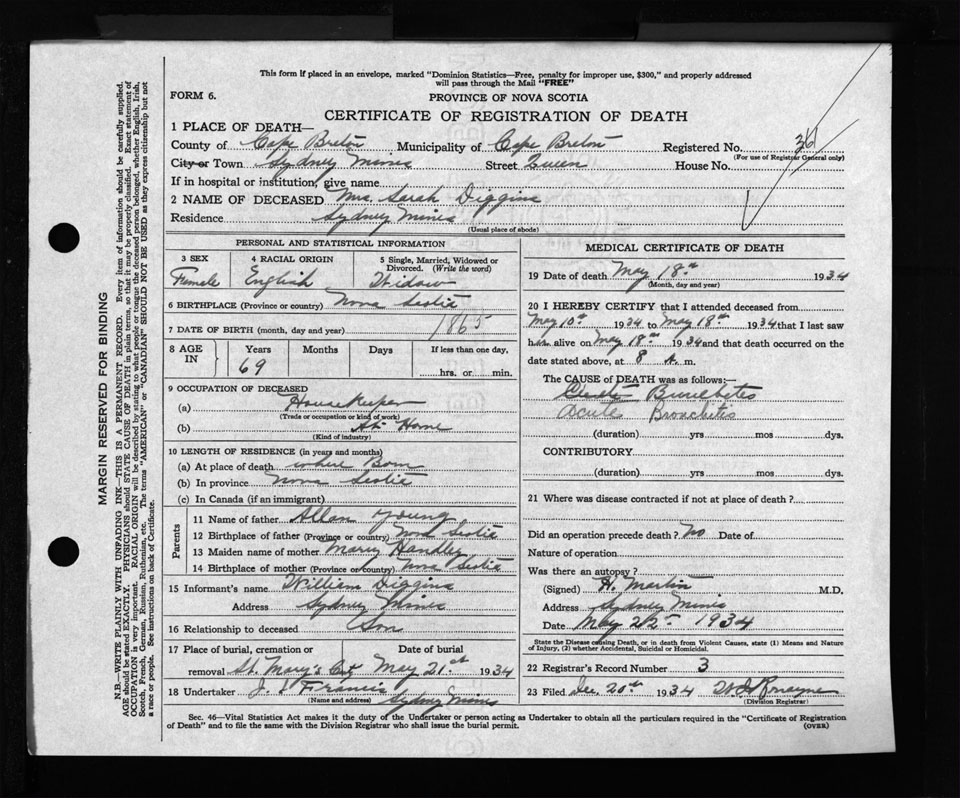 This form if placed in an envelope, marked "Dominion Statistics—Free, penalty for improper use, $300," and properly addressed
will pass through the Mail "FREE"
FORM 6.
PROVINCE OF NOVA SCOTIA
CERTIFICATE OF REGISTRATION OF DEATH
1 PLACE OF DEATH—
County of Cape Breton Municipality of Cape Breton Registered No. 361
(For use of Registrar General only)
City or Town Sydney Mines Street Queen House No.
If in hospital or institution, give name
2 NAME OF DECEASED Mrs. Sarah Diggins
Residence Sydney Mines
(Usual place of abode)
PERSONAL AND STATISTICAL INFORMATION
3 SEX 4 RACIAL ORIGIN 5 Single, Married, Widowed or
Divorced. (Write the word)
Female English Widow
6 BIRTHPLACE (Province or country) Nova Scotia
7 DATE OF BIRTH (month, day and year) 1865
8 AGE IN Years Months Days If less than one day,
69 hrs. or min.
9 OCCUPATION OF DECEASED
(a) Housekeeper
(Trade or occupation or kind of work)
(b) At Home
(Kind of industry)
10 LENGTH OF RESIDENCE (in years and months)
(a) At place of death where Born
(b) In province Nova Scotia
(c) In Canada (if an immigrant)
Parents
11 Name of father Allan Young
12 Birthplace of father (Province or country) Nova Scotia
13 Maiden name of mother Mary Handley
14 Birthplace of mother (Province or country) Nova Scotia
15 Informant's name William Diggins
Address Sydney Mines
16 Relationship to deceased Son
17 Place of burial, cremation or Date of burial
removal St. Mary's Cty May 21st 1934
18 Undertaker J. Francis
(Name and address) Sydney Mines
MEDICAL CERTIFICATE OF DEATH
19 Date of death May 18th 1934
(Month, day and year)
20 I HEREBY CERTIFY that I attended deceased from
May 10th 1934 to May 18th 1934 that I last saw
her alive on May 18th 1934 and that death occurred on the
date stated above, at 8 A. m.
The CAUSE of DEATH was as follows:—
Bronchitis
Acute Bronchitis
(duration) yrs mos dys.
CONTRIBUTORY
(duration) yrs mos dys.
21 Where was disease contracted if not at place of death?
Did an operation precede death? No Date of
Nature of operation
Was there an autopsy?
(Signed) H. Martin M.D.
Address Sydney Mines
Date May 22nd 1934
State the Disease causing Death, or in death from Violent Causes, state (1) Means and Nature
of Injury, (2) whether Accidental, Suicidal or Homicidal.
22 Registrar's Record Number 3
23 Filed Dec. 20th 1934
(Division Registrar)
Sec. 46—Vital Statistics Act makes it the duty of the Undertaker or person acting as Undertaker to obtain all the particulars required in the "Certificate of Registration
of Death" and to file the same with the Division Registrar who shall issue the burial permit.
(OVER)
MARGIN RESERVED FOR BINDING
N.B.—WRITE PLAINLY WITH UNFADING INK—THIS IS A PERMANENT RECORD. Every item of information should be carefully supplied.
AGE should be stated EXACTLY. PHYSICIANS should STATE CAUSE OF DEATH in plain terms, so that it may be properly classified. Exact statement of
OCCUPATION is very important. RACIAL ORIGIN will be described by stating to what people or tongue the deceased person belonged, whether English, Irish,
Scotch, French, German, Russian, Ruthenian, etc. The terms "AMERICAN" or "CANADIAN" SHOULD NOT BE USED as they express citizenship but not
a race or people. See instructions on back of Certificate.